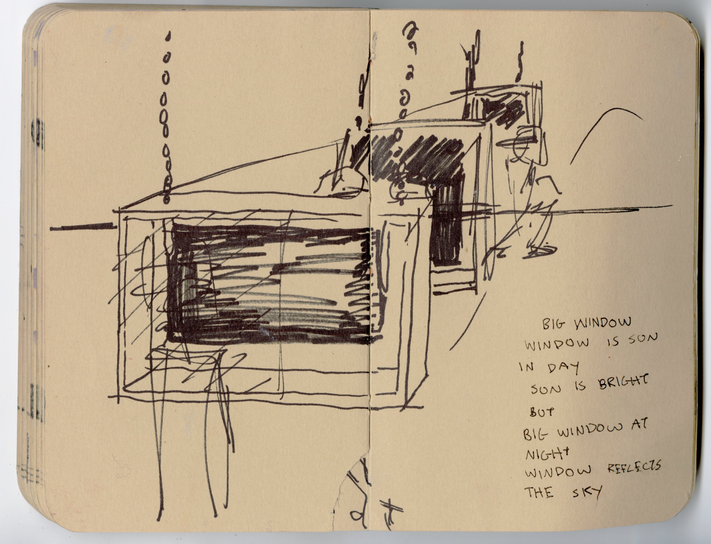 BIG WINDOW
WINDOW IS SUN
IN DAY
SUN IS BRIGHT
BUT
BIG WINDOW AT
NIGHT
WINDOW REFLECTS
THE SKY